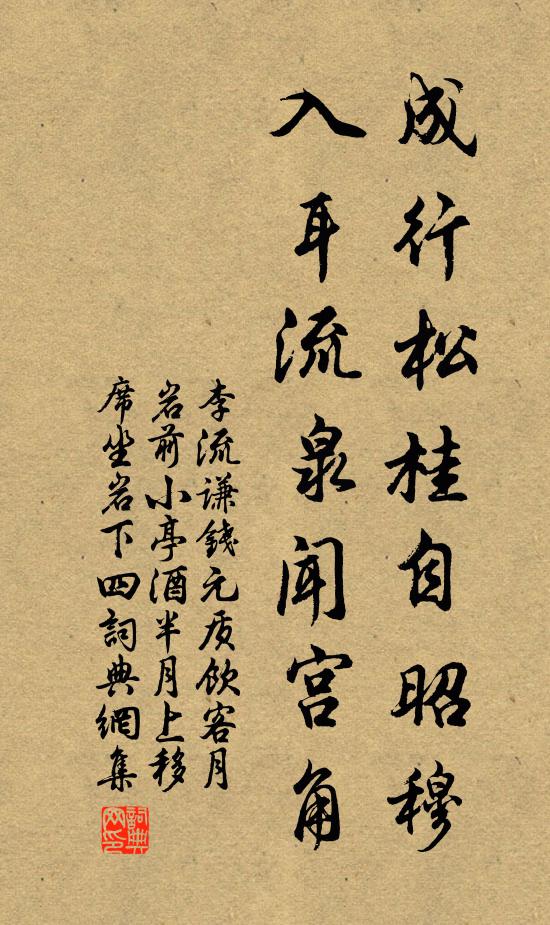 成行松桂自昭穆
入耳流泉闻宫角
李流謙錢元质飲客月
岩前小亭酒半月上移
席坐岩下四詞典網集
詞典
网印